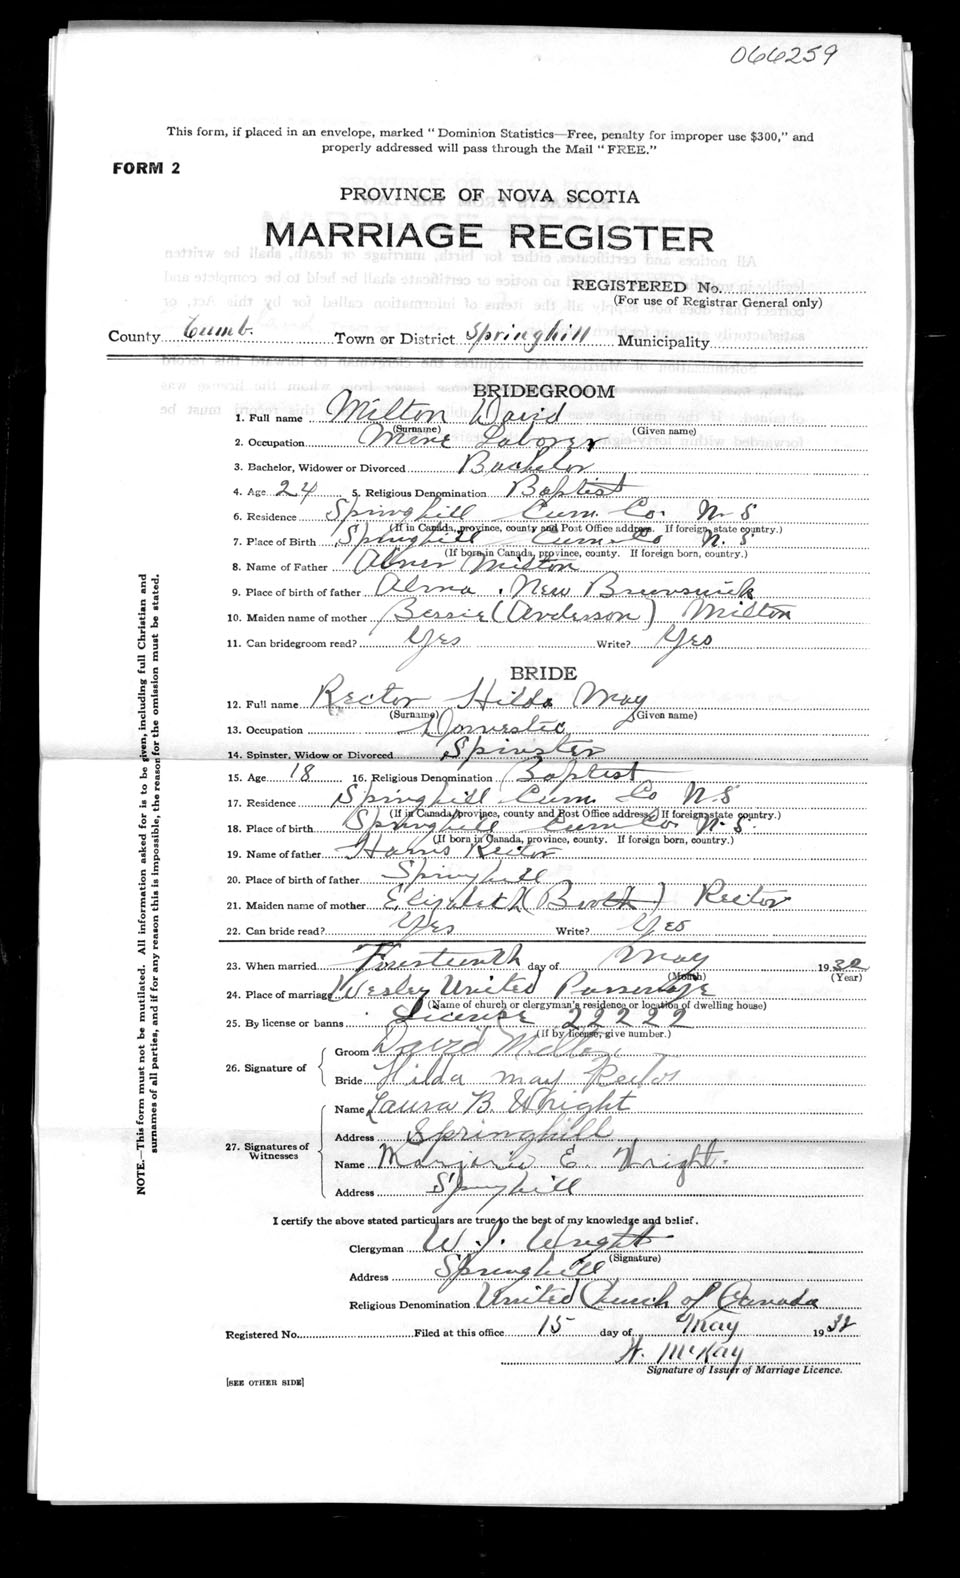 066259
This form, if placed in an envelope, marked "Dominion Statistics—Free, penalty for improper use $300," and
properly addressed will pass through the Mail "FREE."
FORM 2
PROVINCE OF NOVA SCOTIA
MARRIAGE REGISTER
REGISTERED No.
(For use of Registrar General only)
County Cumb. Town or District Springhill Municipality
BRIDEGROOM
1. Full name Milton David
(Surname) (Given name)
2. Occupation Mine Laborer
3. Bachelor, Widower or Divorced Bachelor
4. Age 24 5. Religious Denomination Baptist
6. Residence Springhill Cum. Co. N S
(If in Canada, province, county and Post Office address. If foreign, state country.)
7. Place of Birth Springhill Cum Co N. S.
(If born in Canada, province, county. If foreign born, country.)
8. Name of Father Abner Milton
9. Place of birth of father Alma, New Brunswick
10. Maiden name of mother Bessie (Anderson) Milton
11. Can bridegroom read? Yes Write? Yes
BRIDE
12. Full name Rector Hilda May
(Surname) (Given name)
13. Occupation Domestic
14. Spinster, Widow or Divorced Spinster
15. Age 18 16. Religious Denomination Baptist
17. Residence Springhill Cum. Co N.S
(If in Canada, province, county and Post Office address. If foreign, state country.)
18. Place of birth Springhill Cum Co. N. S.
(If born in Canada, province, county. If foreign born, country.)
19. Name of father Harris Rector
20. Place of birth of father Springhill
21. Maiden name of mother Elizabeth (Booth) Rector
22. Can bride read? Yes Write? Yes
23. When married Fourteenth day of May 1932
(Month) (Year)
24. Place of marriage Wesley United Parsonage
(Name of church or clergyman's residence or location of dwelling house)
25. By license or banns License 22222
(If by license, give number.)
26. Signature of
Groom David Milton
Bride Hilda may Rector
27. Signatures of Witnesses
Name Laura B. Wright
Address Springhill
Name Marjorie E. Wright.
Address Springhill
I certify the above stated particulars are true to the best of my knowledge and belief.
Clergyman W. J. Wright
(Signature)
Address Springhill
Religious Denomination United Church of Canada
Registered No. Filed at this office 15 day of May 1932
H. McKay
Signature of Issuer of Marriage Licence.
[SEE OTHER SIDE]
NOTE.—This form must not be mutilated. All information asked for is to be given, including full Christian and
surnames of all parties, and if for any reason this is impossible, the reason for the omission must be stated.